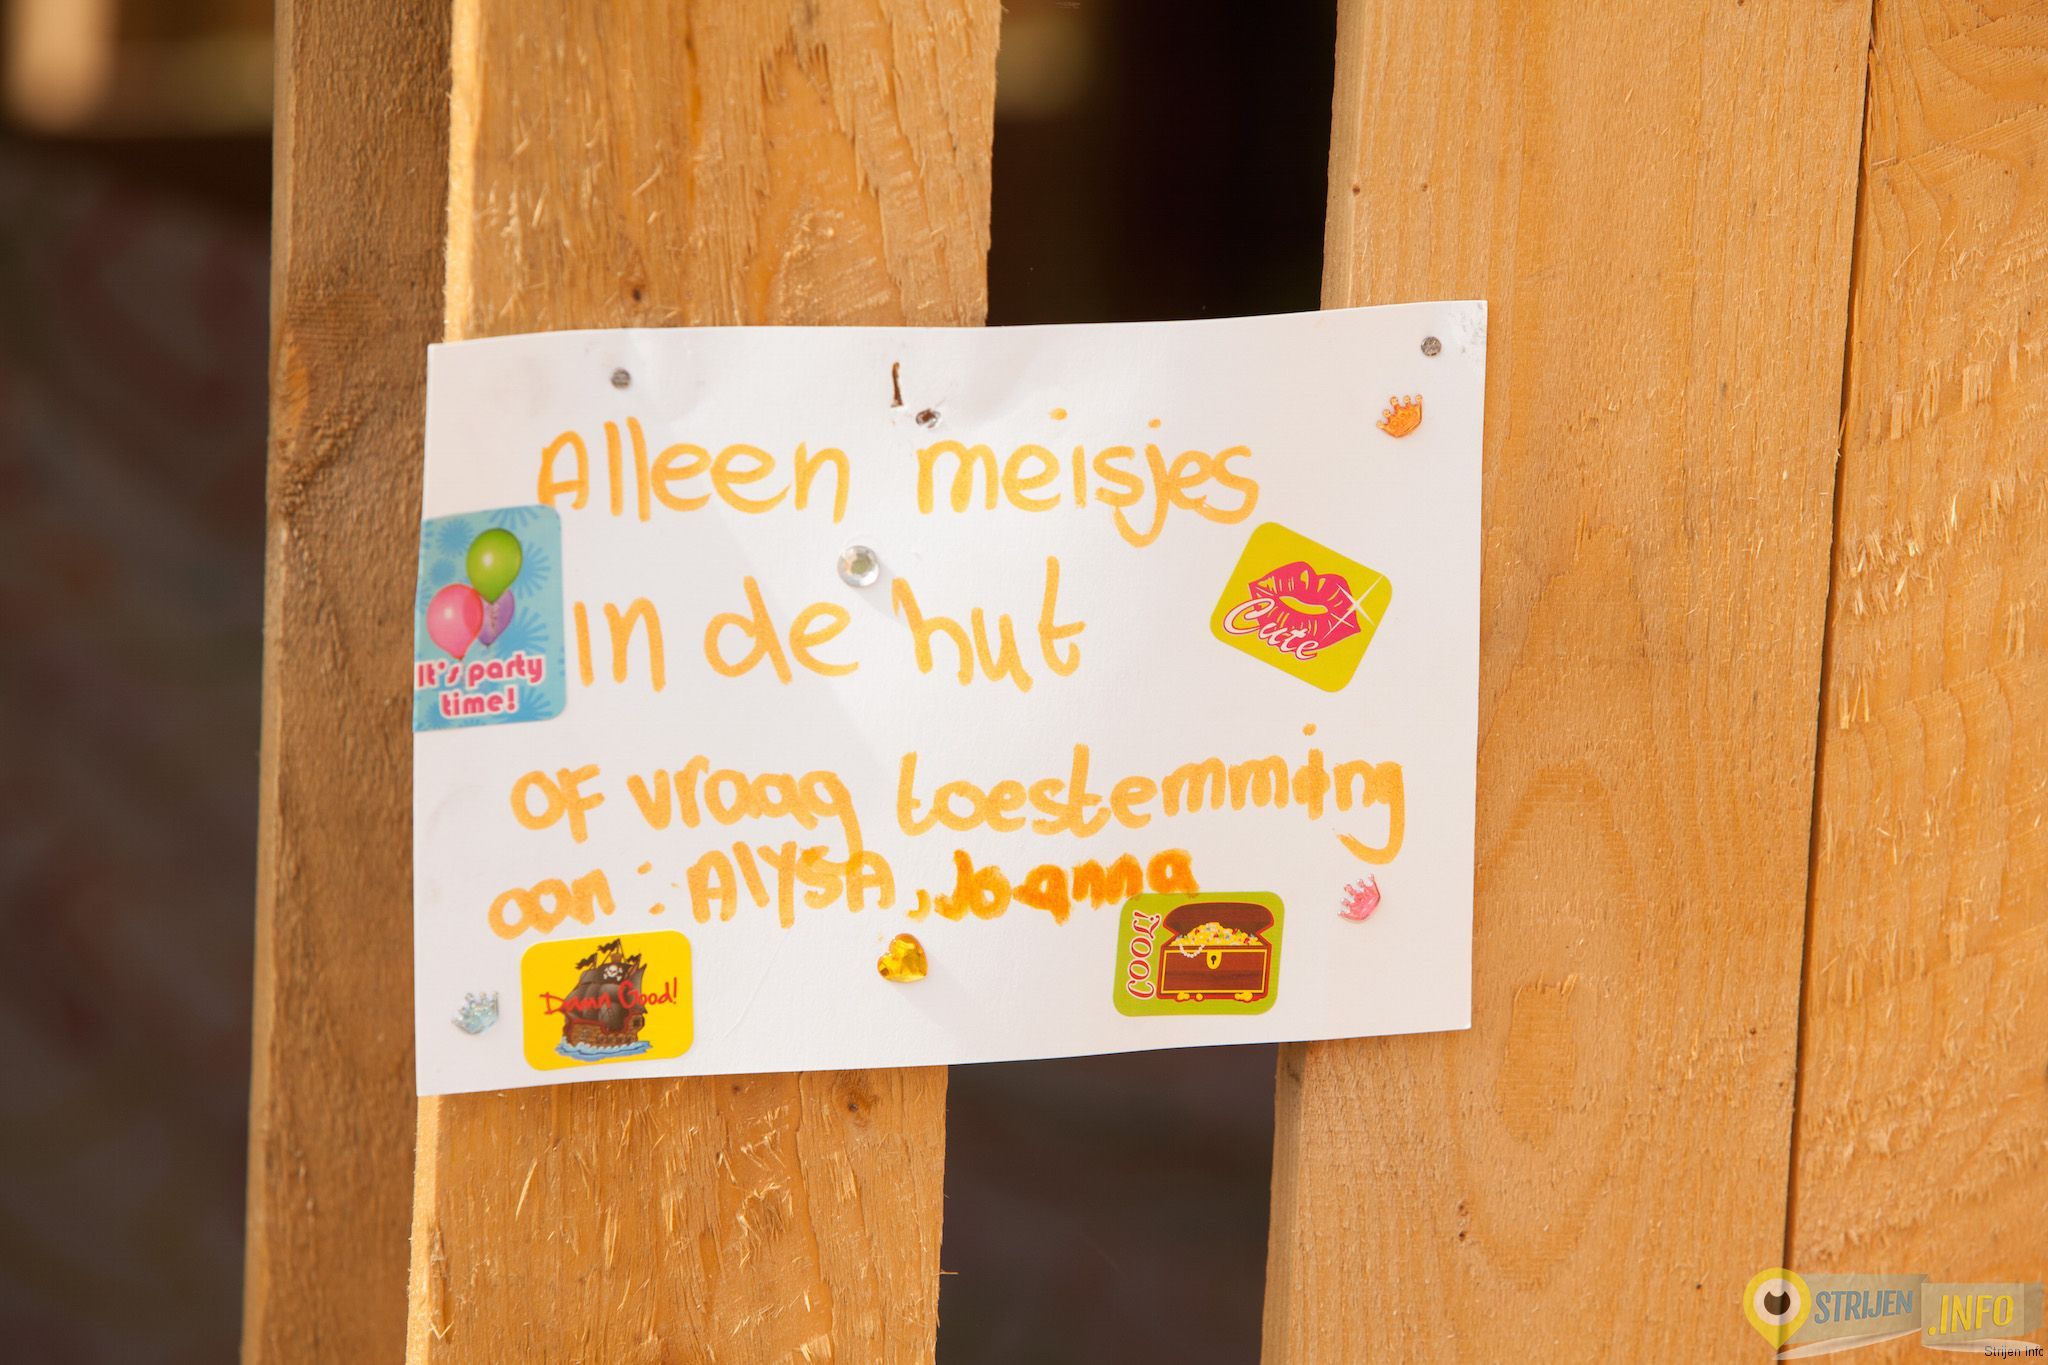 Alleen meisjes
in de hut
of vraag toestemming
aan : Alysa, Joanna
It's party
time!
Cute
Damn Good!
COOL!
STRIJEN .INFO
Strijen info